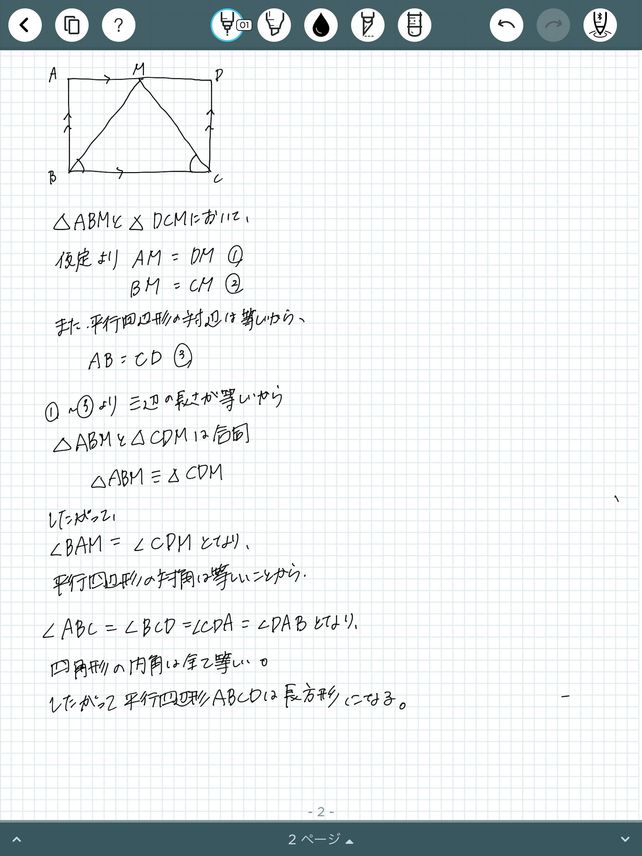 ?
01
A M D
B C
△ABMと△DCMにおいて、
仮定より AM = DM ①
BM = CM ②
また、平行四辺形の対辺は等しいから、
AB = CD ③
①~③より 三辺の長さが等しいから
△ABMと△CDMは合同
△ABM ≡ △CDM
したがって、
∠BAM = ∠CDM となり、
平行四辺形の対角は等しいことから、
∠ABC = ∠BCD = ∠CDA = ∠DAB となり、
四角形の内角は全て等しい。
したがって平行四辺形ABCDは長方形になる。
- 2 -
2 ページ